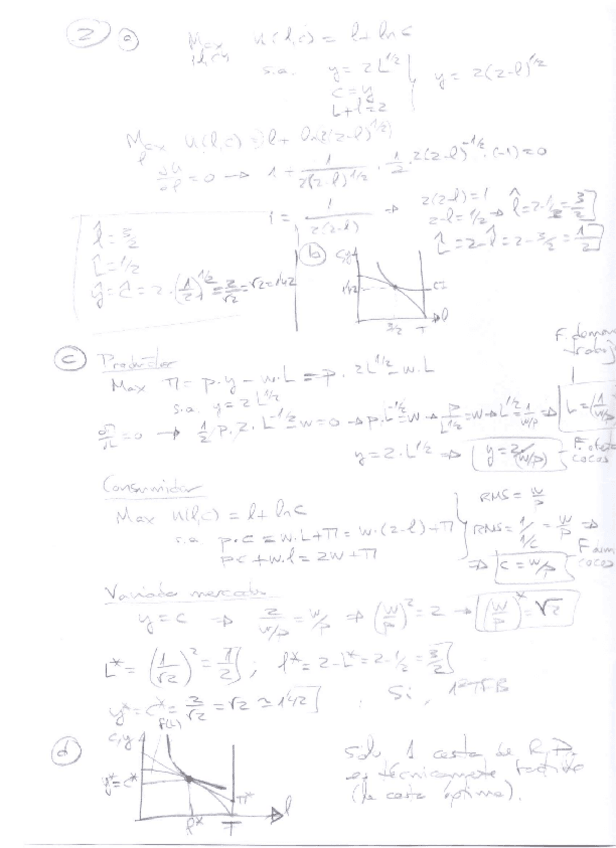 2) a) Max u(l,c) = l + ln c
{l,c,y}
s.a. y = 2L^1/2
c = y
L + l = 2
y = 2(2-l)^1/2
Max u(l,c) = l + ln(2(2-l)^1/2)
l
∂u/∂l = 0 → 1 + 1/(2(2-l)^1/2) · 1/2 · 2(2-l)^-1/2 · (-1) = 0
1 = 1/(2(2-l)) → 2(2-l) = 1
2-l = 1/2 → l̂ = 2 - 1/2 = 3/2]
L̂ = 2 - l̂ = 2 - 3/2 = 1/2]
l̂ = 3/2
L̂ = 1/2
ŷ = ĉ = 2·(1/2)^1/2 = 2/√2 = √2 = 1'42
b) c,y
1'42
3/2 T l
c) Productor
Max Π = p·y - w·L = p·2L^1/2 - w·L
s.a. y = 2L^1/2
∂Π/∂L = 0 → 1/2 p·2·L^-1/2 - w = 0 → p·L^-1/2 = w → p/L^1/2 = w → L^1/2 = 1/(w/p) ⇒ L = (1/(w/p)
y = 2·L^1/2 ⇒ y = 2/(w/p)
cocos
Consumidor
Max u(l,c) = l + ln c
s.a. p·c = w·L + Π = w·(2-l) + Π
pc + w·l = 2w + Π
RMS = w/p
RMS = 1/(1/c) = w/p ⇒
⇒ c = w/p
cocos
Vaciado mercado
y = c ⇒ 2/(w/p) = w/p ⇒ (w/p)² = 2 → (w/p)* = √2
L* = (1/√2)² = 1/2]; l* = 2 - L* = 2 - 1/2 = 3/2]
y* = c* = 2/√2 = √2 ≃ 1'42]. Sí, 1º TFB
d) c,y f(L)
y*=c*
Π*
l* T l
Solo 1 cesta de R.P.
es técnicamente factible
(la cesta óptima).